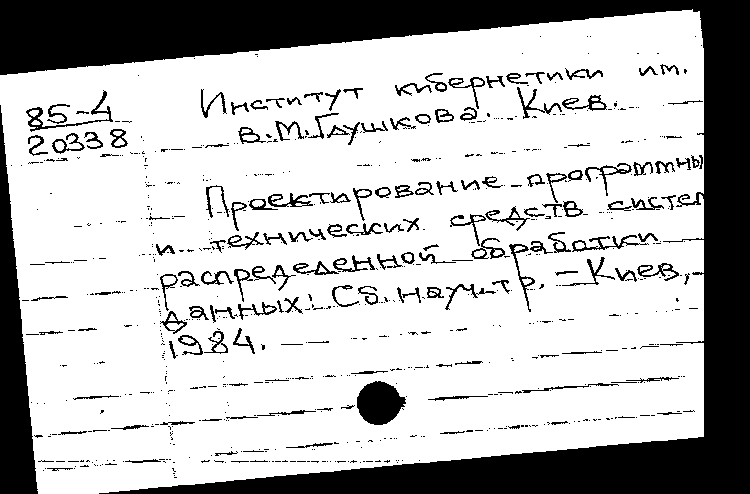 85-4
20338
Институт кибернетики им.
В.М.Глушкова. Киев.
Проектирование программны
и технических средств систем
распределенной обработки
данных: Сб. науч. тр. - Киев,
1984.